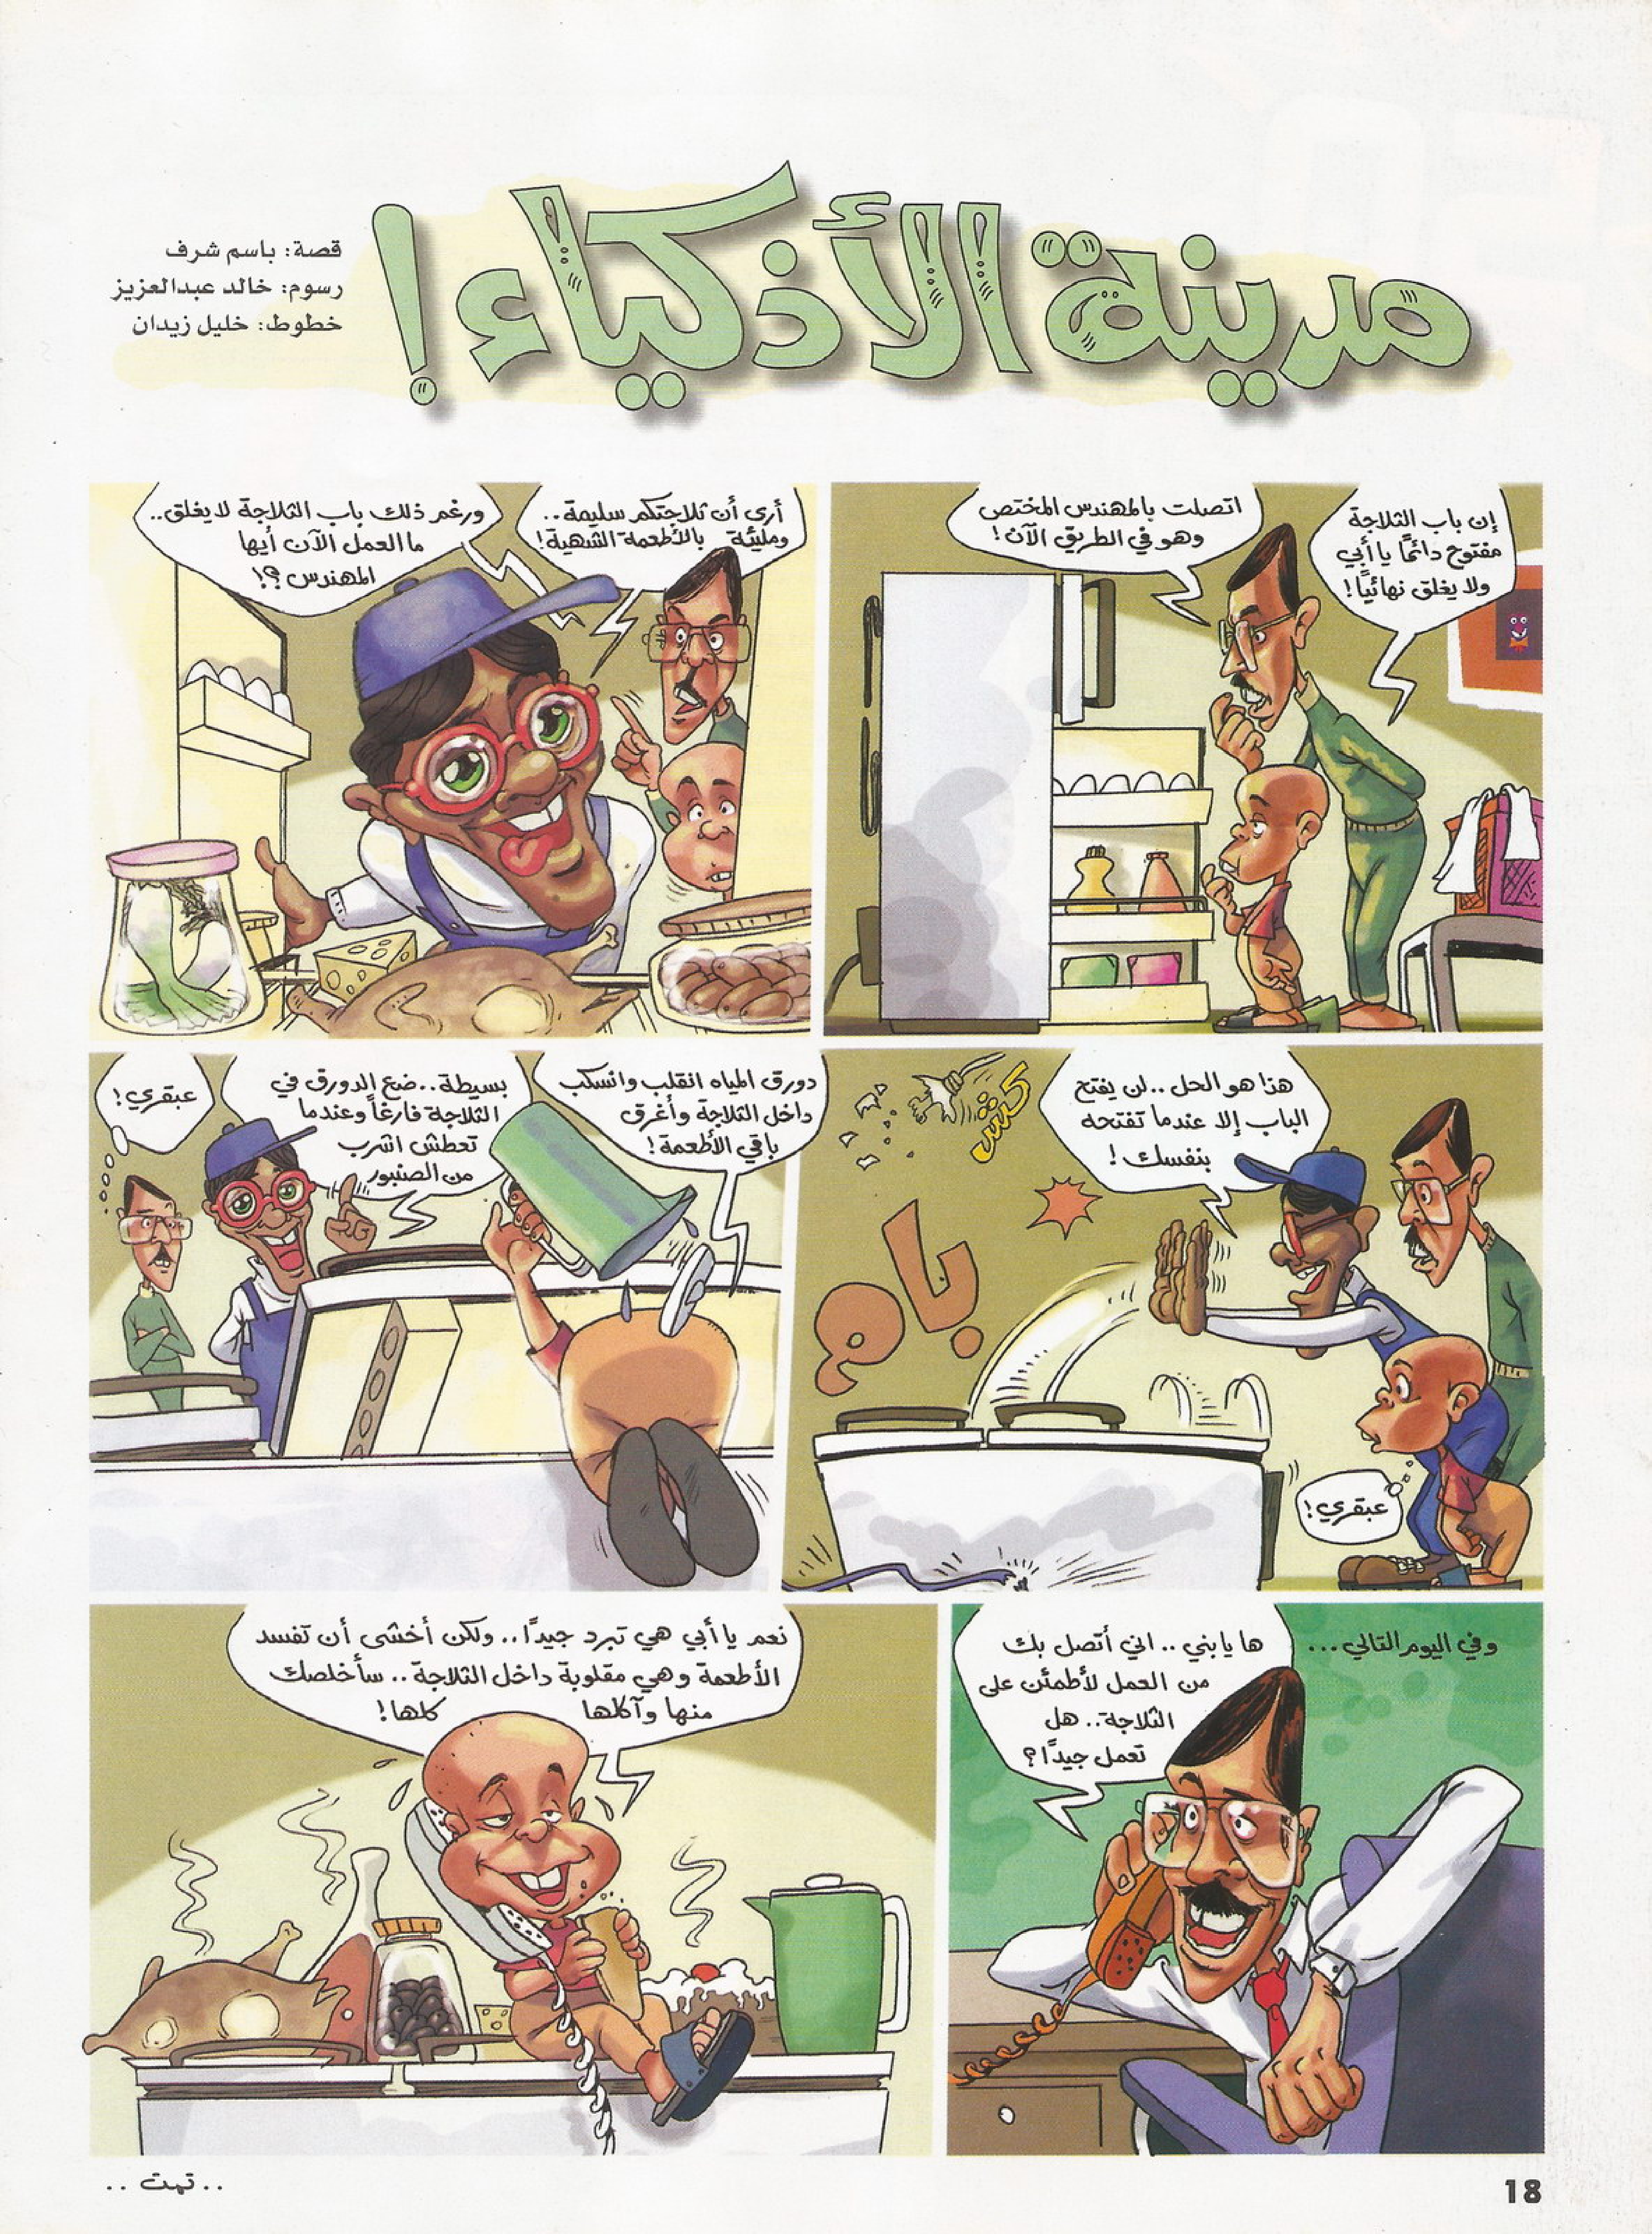 مدينة الأذكياء!
قصة: باسم شرف
رسوم: خالد عبدالعزيز
خطوط: خليل زيدان
إن باب الثلاجة
مفتوح دائمًا يا أبي
ولا يغلق نهائيًا!
اتصلت بالمهندس المختص
وهو في الطريق الآن!
أرى أن ثلاجتكم سليمة..
ومليئة بالأطعمة الشهية!
ورغم ذلك باب الثلاجة لا يغلق..
ما العمل الآن أيها
المهندس؟!
هذا هو الحل.. لن يفتح
الباب إلا عندما تفتحه
بنفسك!
كتش
بام
عبقري!
دورق المياه انقلب وانسكب
داخل الثلاجة وأغرق
باقي الأطعمة!
بسيطة.. ضع الدورق في
الثلاجة فارغاً وعندما
تعطش اشرب
من الصنبور
عبقري!
وفي اليوم التالي...
ها يا بني.. اني أتصل بك
من العمل لأطمئن على
الثلاجة.. هل
تعمل جيدًا؟
نعم يا أبي هي تبرد جيدًا.. ولكن أخشى أن تفسد
الأطعمة وهي مقلوبة داخل الثلاجة.. سأخلصك
منها وآكلها كلها!
.. تمت ..
18